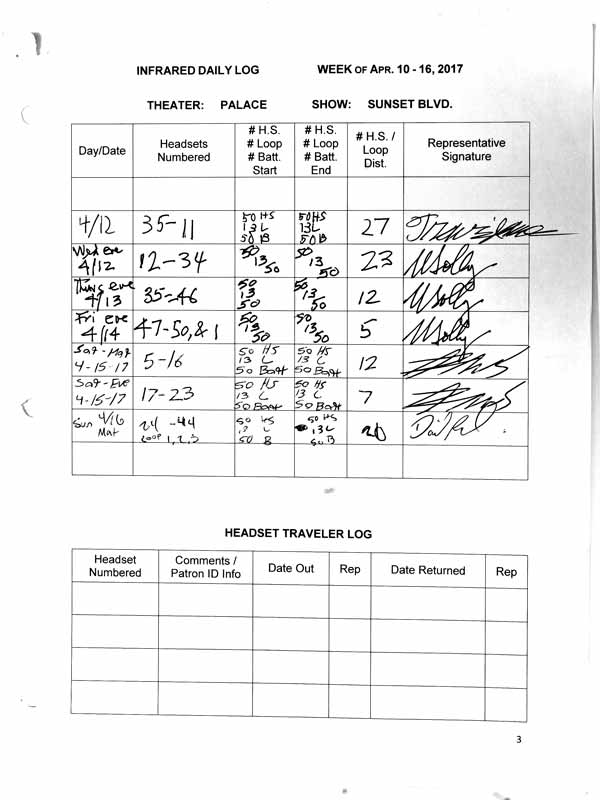 INFRARED DAILY LOG WEEK OF APR. 10 - 16, 2017
THEATER: PALACE SHOW: SUNSET BLVD.
Day/Date
Headsets
Numbered
# H.S.
# Loop
# Batt.
Start
# H.S.
# Loop
# Batt.
End
# H.S. /
Loop
Dist.
Representative
Signature
4/12
35-11
50 HS
13 L
50 B
50 HS
13L
50 B
27
Wed eve
4/12
12-34
50
13
50
50
13
50
23
Thurs eve
4/13
35-46
50
13
50
50
13
50
12
Fri eve
4/14
47-50, & 1
50
13
50
50
13
50
5
Sat - Mat
4-15-17
5-16
50 HS
13 L
50 Batt
50 HS
13 C
50 Batt
12
Sat - Eve
4-15-17
17-23
50 HS
13 L
50 Batt
50 HS
13 C
50 Batt
7
Sun 4/16
Mat
24 - 44
Loop 1, 2, 3
50 HS
13 L
50 B
50 HS
13 L
50 B
20
HEADSET TRAVELER LOG
Headset
Numbered
Comments /
Patron ID Info
Date Out
Rep
Date Returned
Rep
3